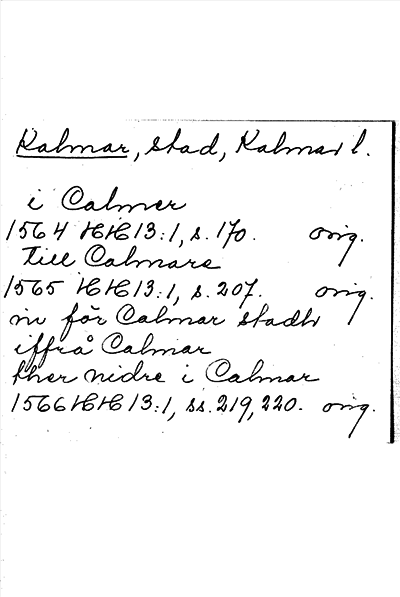 Kalmar, stad, Kalmar l.
i Calmer
1564 HH 13:1, s. 170. orig.
till Calmare
1565 HH 13:1, s. 207. orig.
in för Calmar stadh
iffrå Calmar
ther nidre i Calmar
1566 HH 13:1, ss. 219, 220. orig.